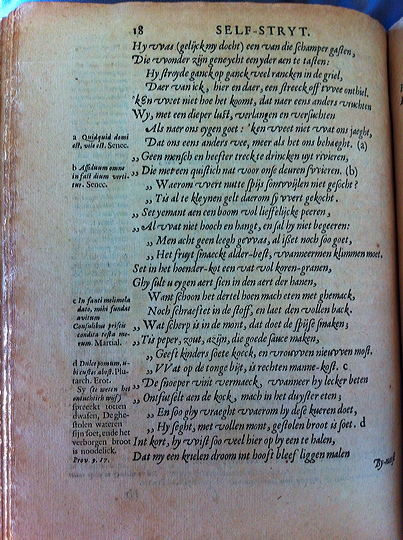 18 SELF-STRYT.
Hy vvas (gelijck my docht) een van die schamper gasten,
Die vvonder zijn geneycht een yder aen te tasten:
Hy stroyde ganck op ganck veel rancken in de griel,
Daer van ick, hier en daer, een streeck oft tvvee onthiel.
'k'en vveet niet hoe het koomt, dat naer eens anders vruchten
Wy, met een dieper lust, verlangen en versuchten
Als naer ons eygen goet: 'ken vveet niet vvat ons jaeght,
Dat ons eens anders vvee, meer als het ons behaeght. (a)
„ Geen mensch en heefter treck te drincken uyt rivieren,
„ Die met een quistich nat voor onse deuren svvieren. (b)
„ Waerom vvert nutte spijs somvvijlen niet gesocht?
„ Tis al te kleynen gelt daerom sy vvert gekocht.
„ Set yemant aen een boom vol lieffelijcke peeren,
„ Al vvat niet hooch en hangt, en sal hy niet begeeren:
„ Men acht geen leegh gevvas, al ißet noch soo goet,
„ Het fruyt smaeckt alder-best, vvanneermen klimmen moet.
Set in het hoender-kot een vat vol koren-granen,
Ghy sult u eygen aert sien in den aert der hanen,
Want schoon het dertel hoen mach eten met ghemack,
Noch schraeft et in de stoff, en laet den vollen back.
„ Wat scherp is in de mont, dat doet de spijse smaken;
„ Tis peper, zout, azijn, die goede sauce maken,
„ Geeft kinders soete koeck, en vrouvven nieuvven most.
„ VVat op de tonge bijt, is rechten manne-kost. c
„ De snoeper vint vermaeck, vvanneer hy lecker beten
„ Ontfutselt aen de kock, mach in het duyster eten;
„ En soo ghy vraeght vvaerom hy dese kueren doet,
„ Hy seght, met vollen mont, gestolen broot is soet. d
Int kort, hy vvist soo veel hier op by een te halen,
Dat my een krielen droom int hooft bleef liggen malen
By-nae
a Quidquid domi
est, vile est. Senec.
b Assiduum omne
in fastidium verti-
tur. Senec.
c Infanti melimela
dato, mihi fundat
avitum
Consulibus priscis
condita testa me-
rum. Martial.
d Dulce pomum, u-
bi custos abest. Plu-
tarch. Erot.
Sy (te weten het
ontuchtich wijf)
spreeckt totten
dwasen, De ghe-
stolen wateren
sijn soet, ende het
verborgen broot
is noodelick.
Prov. 9. 17.